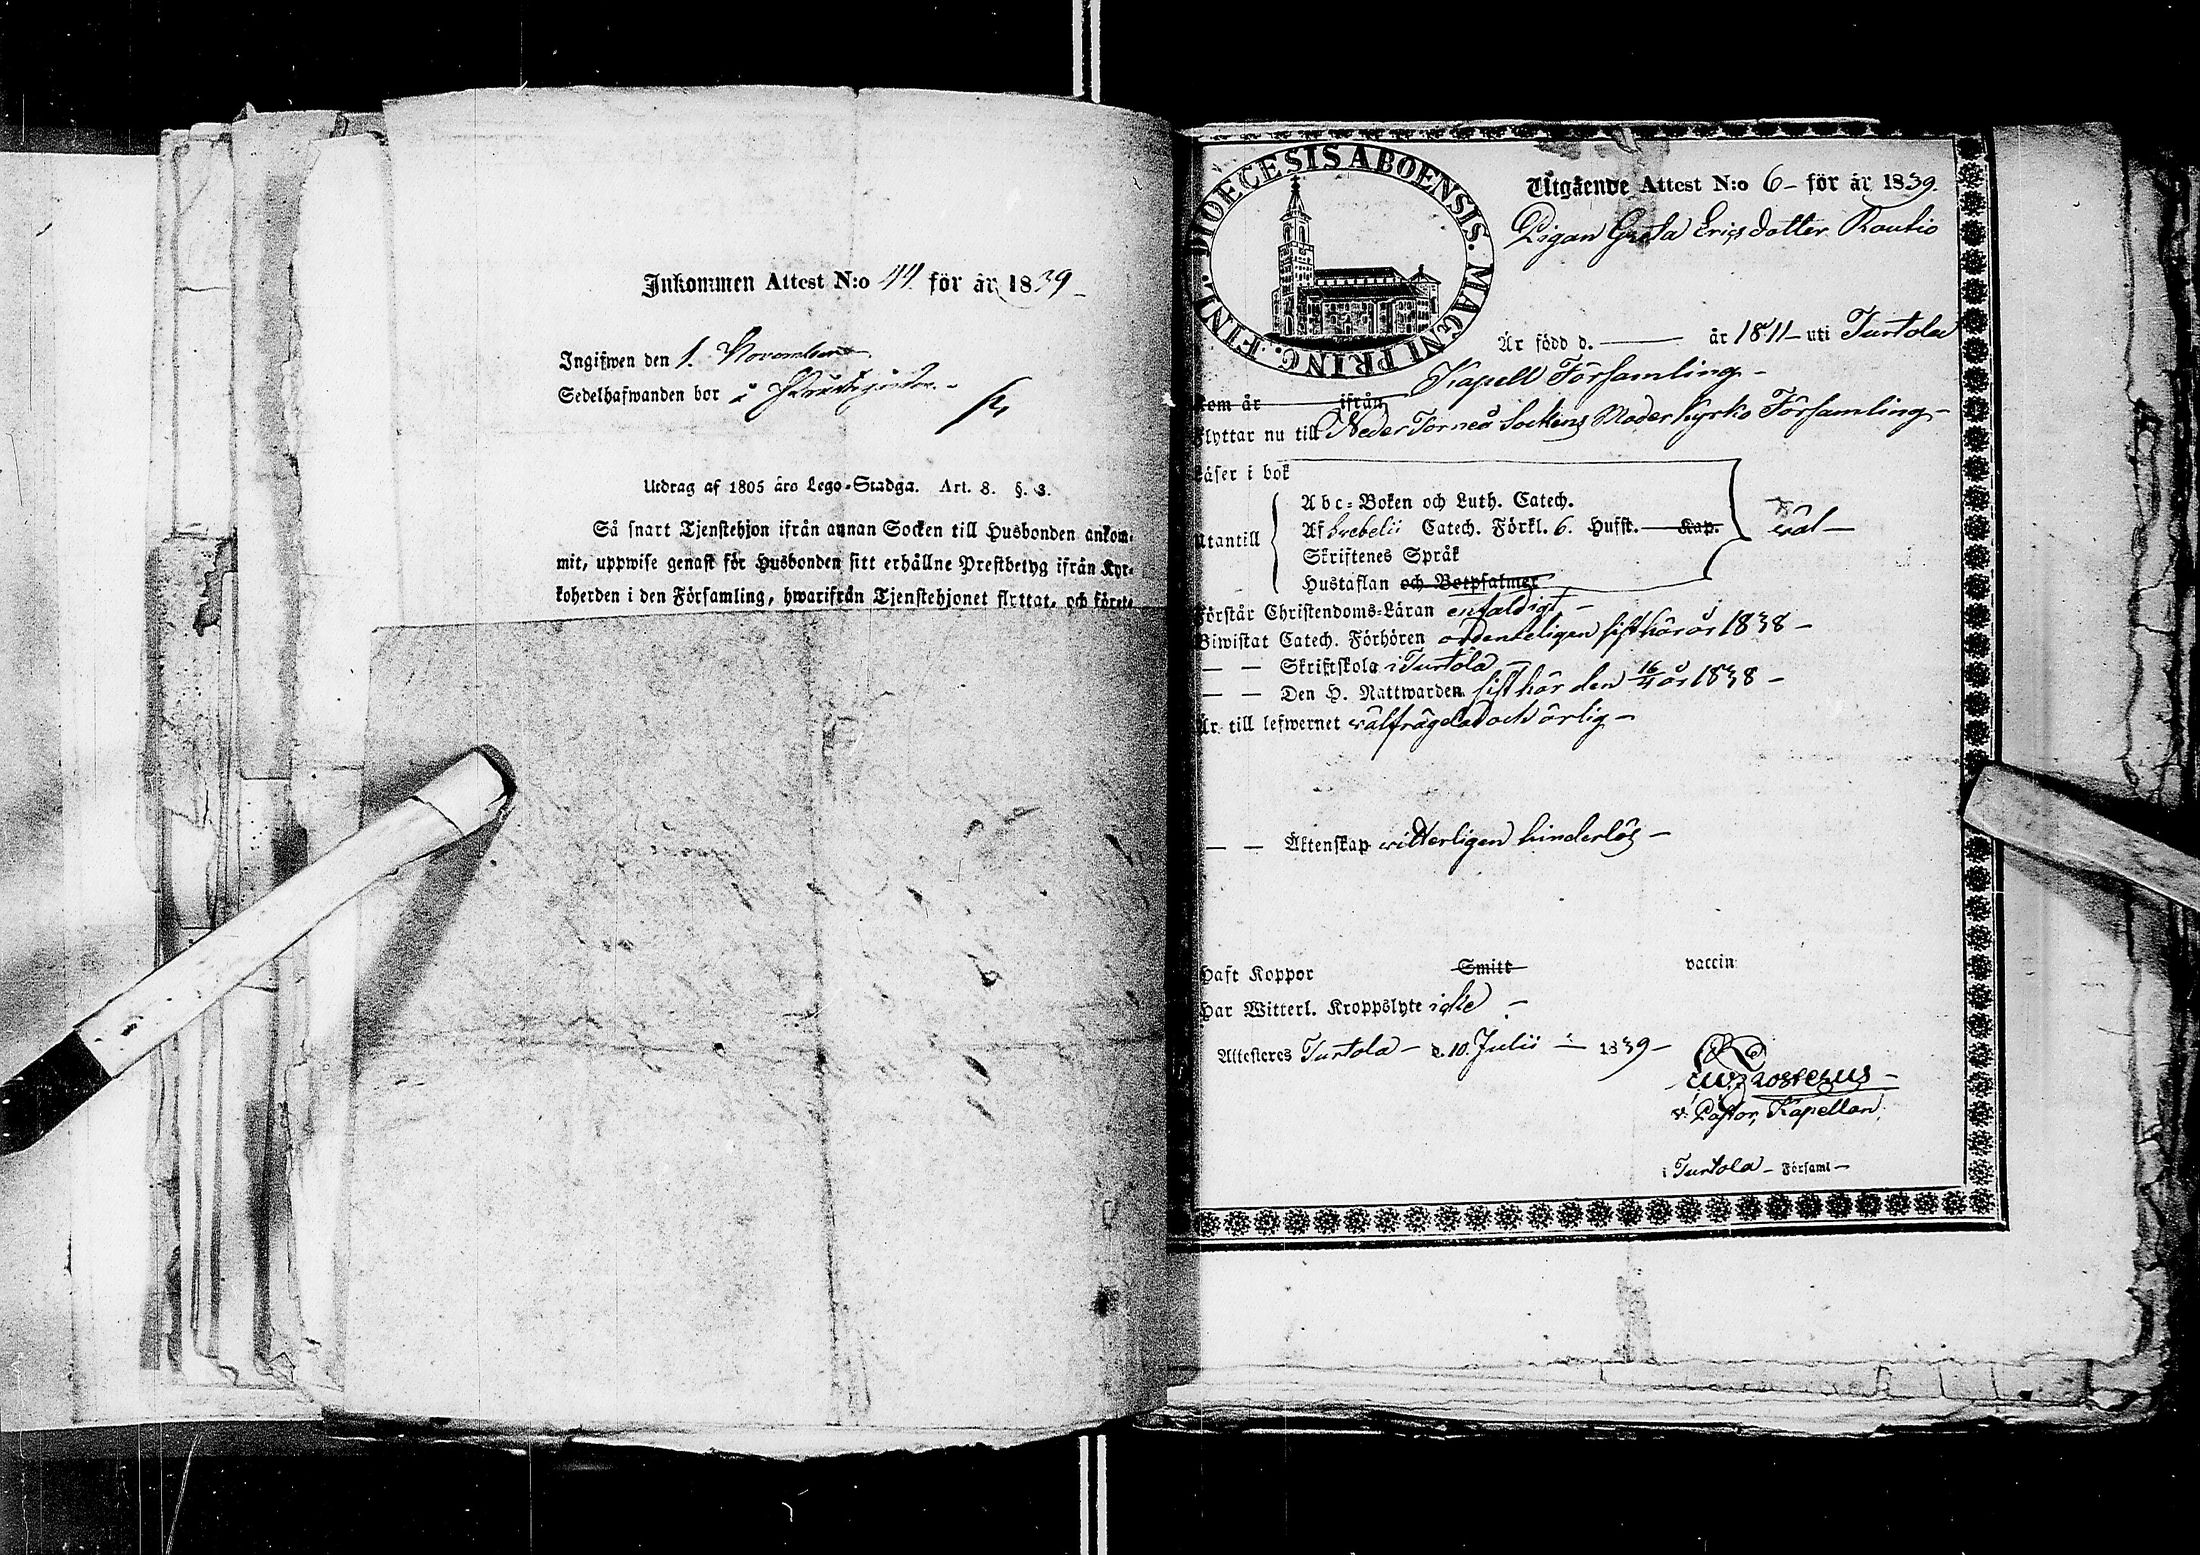 Inkommen Attest N:o 44 för år 1839
Ingifwen den 1. November
Sedelhafwanden bor i
Utdrag af 1805 års Lego-Stadga. Art. 8. §. 3.
Så snart Tjenstehjon ifrån annan Socken till Husbonden ankom-
mit, uppwise genast för Husbonden sitt erhållne Prestbetyg ifrån Kyr-
koherden i den Församling, hwarifrån Tjenstehjonet flyttat, och förete
DIOECESIS ABOENSIS. MAGNI PRINC. FINL.
Utgående Attest N:o 6 – för år 1839.
Pigan Greta Ericsdotter Rautio
Är född d. — år 1811 – uti Turtola
Kapell Församling –
Kom år ifrån
Flyttar nu till Neder Torneå Sockens Moderkyrko Församling –
Läser i bok
Abc-Boken och Luth. Catech.
Utantill Af Svebelii Catech. Förkl. 6. Hufst. Kap. väl –
Skriftenes Språk
Hustaflan och Botpsalmer
Förstår Christendoms-Läran enfaldigt –
Biwistat Catech. Förhören ordenteligen sist här år 1838 –
— — Skriftskola i Turtola –
— — Den H. Nattwarden sist här den 16/4 år 1838 –
Är till lefwernet välfrägdad och ärlig –
— — Äktenskap witterligen hinderlös –
Haft Koppor Smitt vaccin
Har Witterl. Kroppslyte icke –
Attesteres Turtola – d. 10. Julii – 1839 –
v. Pastor, Kapellan.
i Turtola – Församl –